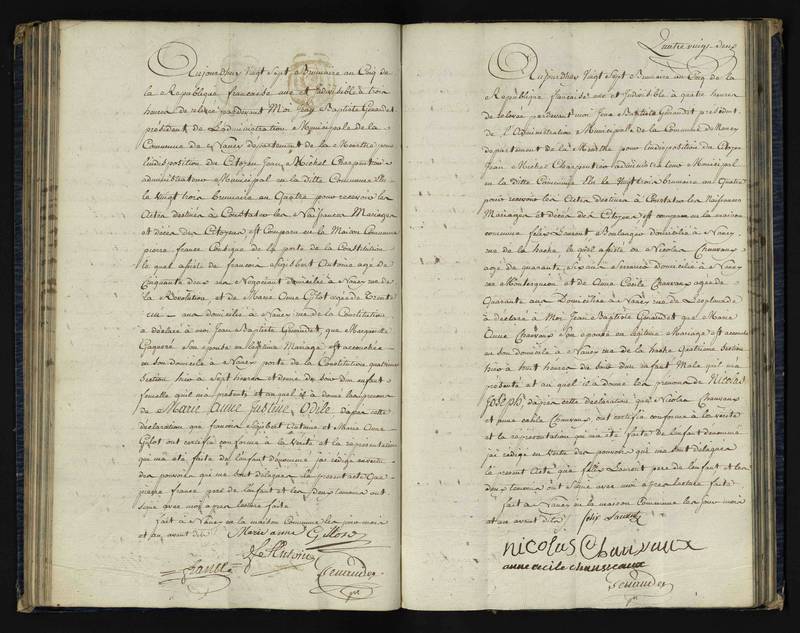 Aujourdhuy Vingt Sept Brumaire an Cinq de
la République francaise une et indivisible à trois
heures de relevée pardevant Moi Jean Baptiste Geraudet
président de L'administration Municipale de la
Commune de Nancy département de la Meurthe pour
lindisposition du Citoyen Jean Michel Charpentier
administrateur Municipal en la ditte Commune Elu
le Vingt trois brumaire an Quatre pour recevoir les
Actes destinés à Constater les Naissances Mariages
et décès des Citoyens est Comparu en la Maison Commune
pierre france de la porte de la Constitution
le quel assisté de francois Sigisbert Antoine agé de
Cinquante deux ans Négociant domicilié à Nancy rue de
la Révolution et de Marie Anne Gilot agée de Trente
ans domiciliée à Nancy rue de la Constitution
a déclaré à moi Jean Baptiste Geraudet, que Marguerite
son épouse en légitime Mariage est accouchée
en son domicile à Nancy porte de la Constitution quatrieme
Section hier à Sept heures et demie du soir dun enfant
femelle quil ma présenté et au quel il a donné les prenoms
de Marie Anne Justine Odile daprès cette
déclaration que francois Sigisbert Antoine et Marie Anne
Gilot ont certifié conforme à la Vérité et la représentation
qui ma été faite de lenfant dénommé jai rédigé en vertu
des pouvoirs qui me sont délégués le présent acte Que
pierre france pere de lenfant et les deux temoins ont
signé avec moi après lecture faite
fait à Nancy en la maison Commune les jour mois
et an avant dits Marie anne Gillot
france
Geraudet
Quatre vingt deux
Aujourdhuy Vingt Sept Brumaire an Cinq de la
République francaise une et Indivisible à quatre heures
de relevée pardevant moi Jean Baptiste Geraudet président
de L'Administration Municipale de la Commune de Nancy
département de la Meurthe pour lindisposition du Citoyen
Jean Michel Charpentier administrateur Municipal
en la ditte Commune Elu le Vingt trois brumaire an Quatre
pour recevoir les Actes destinés à Constater les Naissances
Mariages et décès des Citoyens est comparu en la maison
commune felix Laurent Boulanger domicilié à Nancy
rue de la hache le quel assisté de Nicolas Chauvaux
agé de quarante six ans Serrurier domicilié à Nancy
rue et de Anne Cécile Chauvaux agée de
Quarante ans Domiciliée à Nancy rue de Lesplanade
à déclaré à Moi Jean Baptiste Geraudet que Marie
Anne Chauvaux Son épouse en légitime Mariage est accouchée
en son domicile à Nancy rue de la hache Quatrieme Section
hier à huit heures du soir dun enfant Male quil ma
présenté et au quel il a donné les prenoms de Nicolas
Joseph, daprès cette déclaration que Nicolas Chauvaux
et anne cécile Chauvaux ont certifié conforme à la vérité
et la représentation qui ma été faite de lenfant dénommé
jai rédigé en vertu des pouvoirs qui me sont délégués
le présent Acte que félix Laurent pere de lenfant et les
deux temoins ont Signé avec moi après lecture faite
fait à Nancy en la maison Commune les jour mois
et an avant dits felix Laurent
nicolas Chauvaux
anne cecile chauveaux
Geraudet